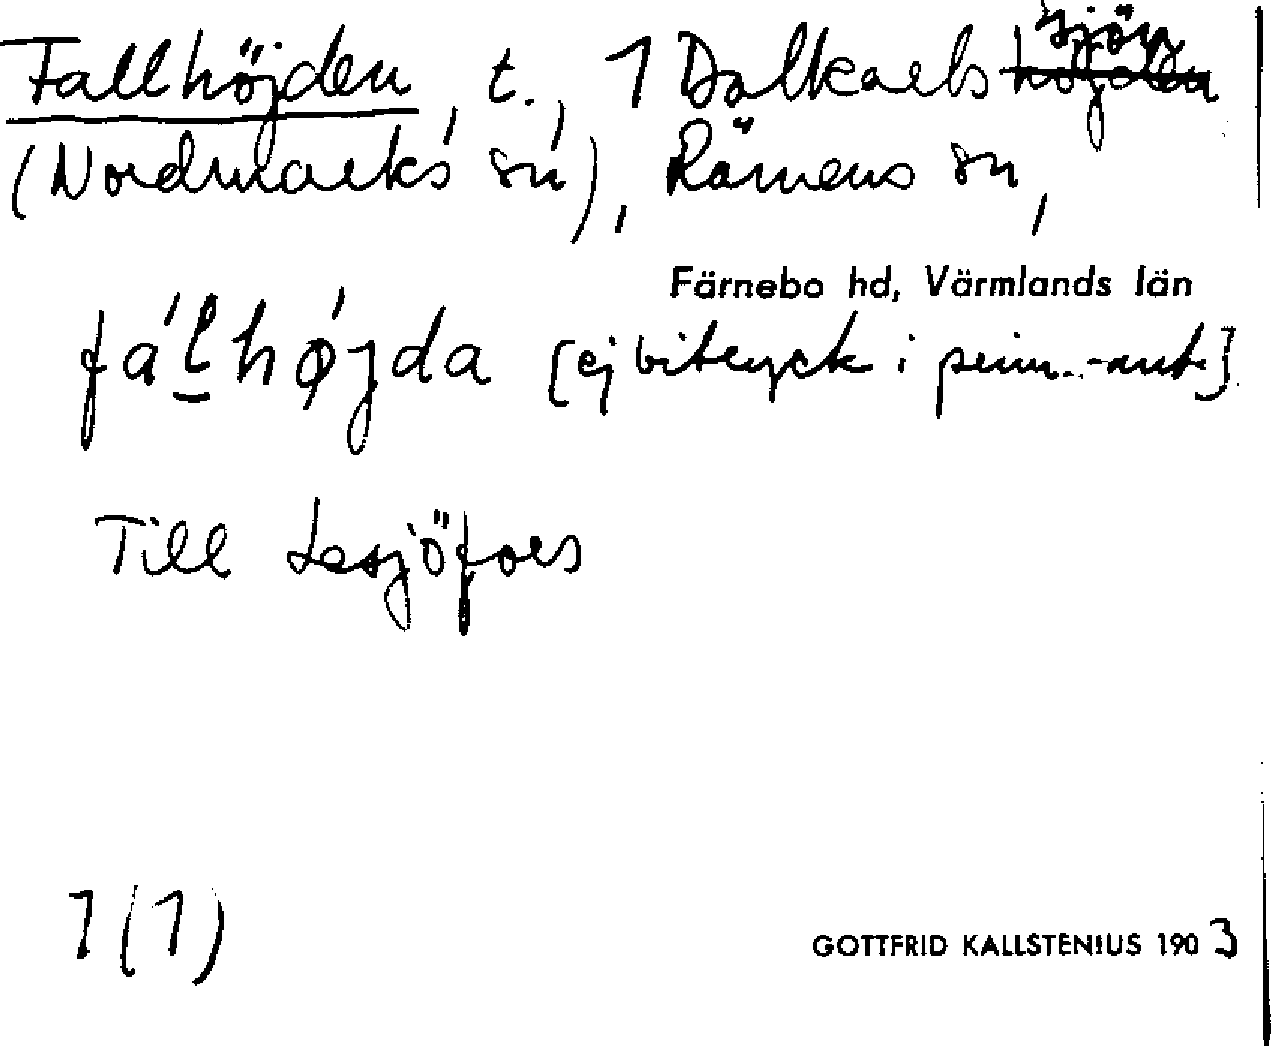 Fallhöjden, t., 1 Dalkarlssjön
(Nordmarks sn), Rämens sn,
Färnebo hd, Värmlands län
fáḻhǿjda [ej bitryck i prim.-ant.]
Till Lesjöfors
1(1)
GOTTFRID KALLSTENIUS 1903